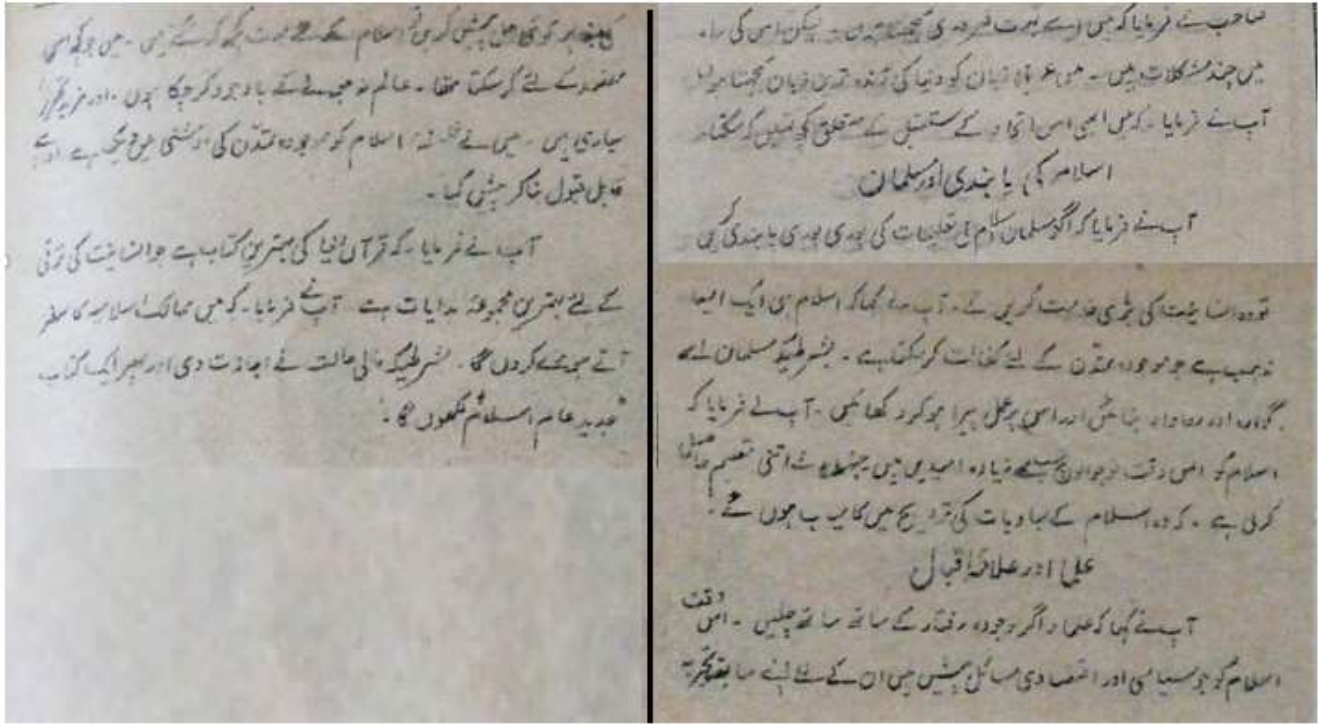 صاحب نے فرمایا کہ میں اسے بہت ضروری سمجھتا ہوں۔ لیکن اس کی راہ
میں چند مشکلات ہیں۔ میں عربی زبان کو دنیا کی زندہ ترین زبان سمجھتا ہوں
آپ نے فرمایا۔ کہ میں ابھی اس اتحاد کے مستقبل کے متعلق کچھ نہیں کہہ سکتا۔
اسلام کی پابندی اور مسلمان
آپ نے فرمایا کہ اگر مسلمان اسلامی تعلیمات کی پوری پوری پابندی کریں گے
تو وہ انسانیت کی بڑی خدمت کریں گے۔ آپ نے کہا کہ اسلام ہی ایک ایسا
مذہب ہے جو موجودہ تمدن کے لئے کفالت کر سکتا ہے۔ بشرطیکہ مسلمان اسے
اور روادار بنائیں اور اس پر عمل پیرا ہو کر دکھائیں۔ آپ نے فرمایا کہ
اسلام کو اس وقت نوجوانوں سے زیادہ امیدیں ہیں جنہوں نے اتنی تعلیم حاصل
کرلی ہے۔ کہ وہ اسلام کے مبادیات کی ترویج میں کامیاب ہوں گے!
علما اور علامہ اقبال
آپ نے کہا کہ علماء اگر موجودہ رفتار کے ساتھ ساتھ چلیں۔ اس وقت
اسلام کو جو سیاسی اور اقتصادی مسائل پیش ہیں ان کے لئے اپنے سابقہ تجربہ
کی بنا پر کوئی حل پیش کریں تو اسلام کے لئے بہت کچھ کر سکتے ہیں۔ میں جو کچھ اس
مقصد کے لئے کر سکتا تھا۔ عالم نہ ہونے کے باوجود کر چکا ہوں۔ اور مزید
جاری ہیں۔ میں نے فلسفہ اسلام کو موجودہ تمدن کی روشنی میں دیکھا ہے اور اسے
قابل قبول بنا کر پیش کیا۔
آپ نے فرمایا۔ کہ قرآن دنیا کی بہترین کتاب ہے جو انسانیت کی ترقی
کے لئے بہترین مجموعہ ہدایات ہے۔ آپ نے فرمایا۔ کہ میں ممالک اسلامیہ کا سفر
آتے ہوئے کروں گا۔ بشرطیکہ مالی حالت نے اجازت دی اور پھر ایک کتاب
"جدید عالم اسلام" لکھوں گا۔